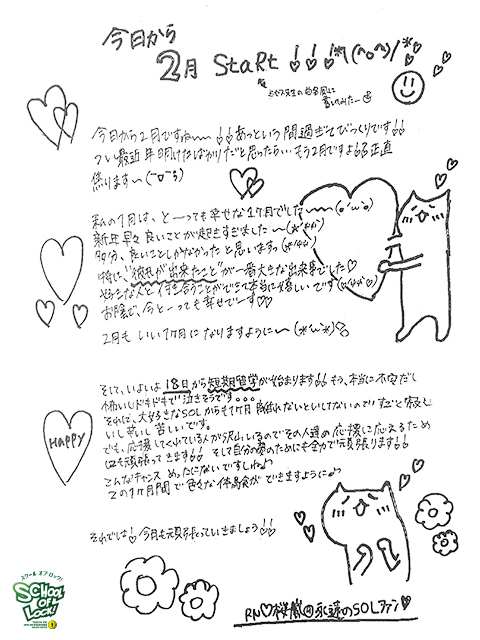 今日から
2月 StaRt !!!*\(^o^)/*
今日から2月ですね〜〜!!あっという間過ぎてびっくりです!!
つい最近年明けたばかりだと思ったらもう2月ですよ!!正直
焦ります〜
私の1月は、と〜っても幸せな1ヶ月でした〜〜〜(о´ω`о)
新年早々良いことが起きすぎました〜
多分、良いことしかなかったと思いますっ
特に"彼氏が出来たこと"が一番大きな出来事でした♡
好きな人と付き合うことができて本当に嬉しいです
お陰で、今と〜っても幸せで〜す♡♡
2月も いい1ヶ月になりますように〜(*´ω`*)
そして、いよいよ18日から短期留学が始まります!!もう、本当に不安だし
怖いしドキドキで泣きそうです。。。
それに、大好きなSOLからも1ヶ月離れないといけないのですごく寂し
いし辛いし苦しいです。
でも、応援してくれている人が沢山いるのでその人達の応援に応えるため
にも頑張ってきます!!そして自分の夢のためにも全力で頑張ります!!
こんなチャンスめったにないですしね♪
この1ヶ月間で色々な体験ができますように♪
HAPPY
それでは!今日も頑張っていきましょう!!
RN♡
永遠のSOLファン♡
スクール オブ ロック!
SCHOOL OF LOCK!